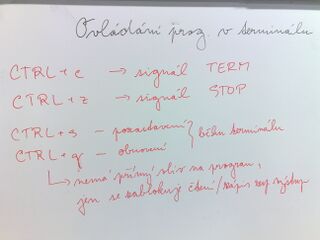 Ovládání prog. v terminálu
CTRL+c → signál TERM
CTRL+z → signál STOP
CTRL+s - pozastavení } běhu terminálu
CTRL+q - obnovení
↳ nemá přímý vliv na program,
jen se zablokuje čtení/zápis výstup